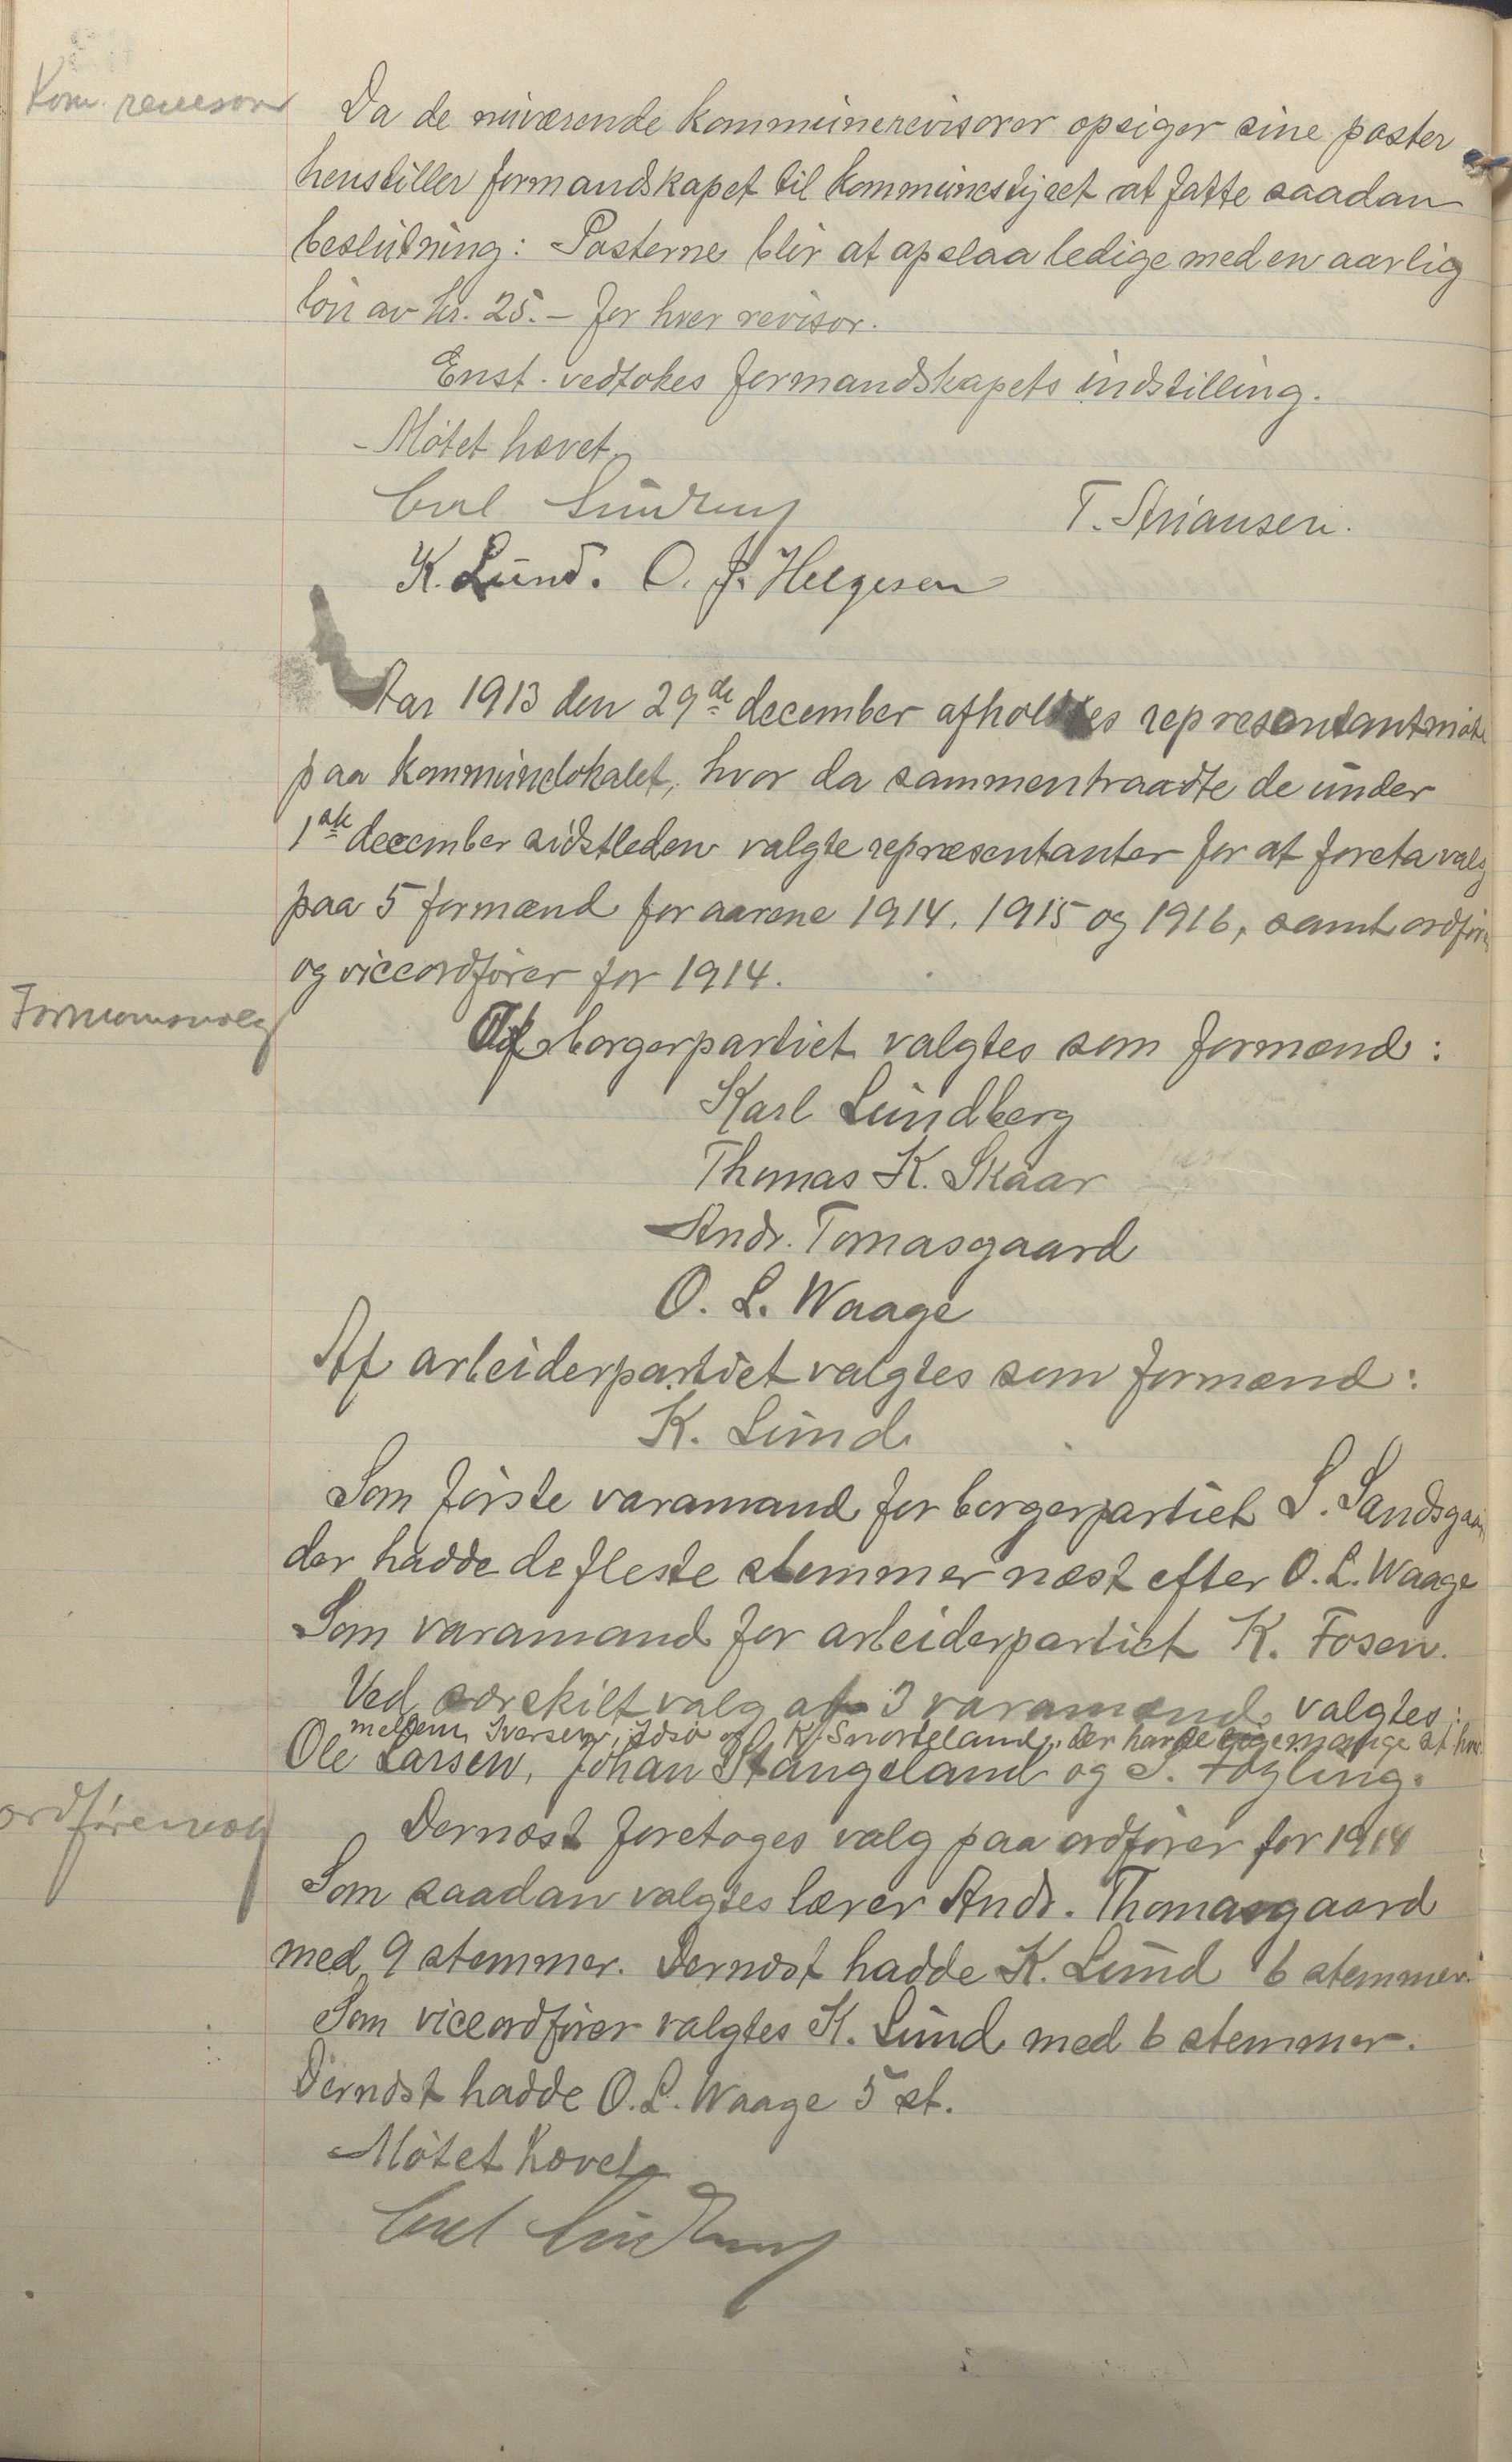 Kom. revisor
Da de nuværende kommunerevisorer opsiger sine poster
henstiller formandskapet til kommunestyret at fatte saadan
beslutning: Posterne blir at opslaa ledige med en aarlig
løn av kr. 25.- for hver revisor.
Enst. vedtokes formandskapets indstilling.
Møtet hævet.
Carl Lundberg T. Stiansen.
K. Lund. O. J. Helgesen
Aar 1913 den 29de december afholdtes representantmøte
paa kommunelokalet, hvor da sammentraadte de under
1ste december sidstleden valgte repræsentanter for at foreta valg
paa 5 formænd for aarene 1914, 1915 og 1916, samt ordfører
og viceordfører for 1914.
Formandsvalg
Af borgerpartiet valgtes som formænd:
Karl Lundberg
Thomas K. Skaar
Andr. Tomasgaard
O. L. Waage
Af arbeiderpartiet valgtes som formænd:
K. Lund
Som første varamand for borgerpartiet S. Sandsgaard
der hadde de fleste stemmer næst efter O. L. Waage
Som varamand for arbeiderpartiet K. Fosen.
Ved særskilt valg af 3 varamænd valgtes:
mellem Iversen, Idsø og K. Snorteland, der havde lige mange st. hver
Ole Larsen, Johan Stangeland og S. Fogling.
ordførervalg
Dernæst foretoges valg paa ordfører for 1914
Som saadan valgtes lærer Andr. Thomasgaard
med 9 stemmer. Dernæst hadde K. Lund 6 stemmer.
Som viceordfører valgtes K. Lund med 6 stemmer.
Dernæst hadde O. L. Waage 5 st.
Møtet hævet
Carl Lundberg